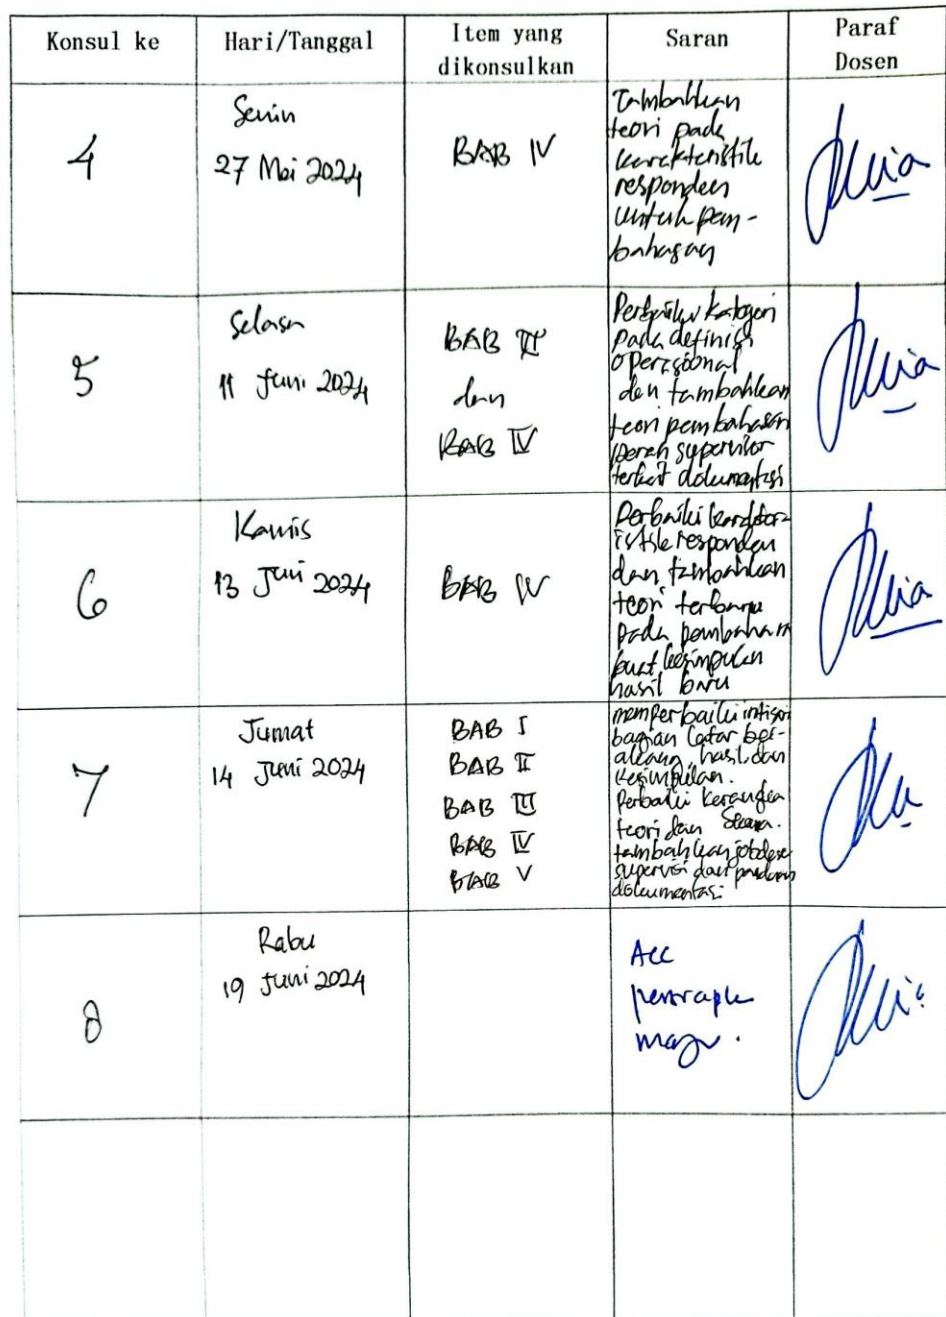 Konsul ke
Hari/Tanggal
Item yang
dikonsulkan
Saran
Paraf
Dosen
4
Senin
27 Mei 2024
BAB IV
Tambahkan
teori pada
karakteristik
responden
untuk pem-
bahasan
5
Selasa
11 Juni 2024
BAB III
dan
BAB IV
Perbaiki kategori
pada definisi
operasional
dan tambahkan
teori pembahasan
peran supervisor
terkait dokumentasi
6
Kamis
13 Juni 2024
BAB IV
Perbaiki karakter-
istik responden
dan tambahkan
teori terbaru
pada pembahasan
buat kesimpulan
hasil baru
7
Jumat
14 Juni 2024
BAB I
BAB II
BAB III
BAB IV
BAB V
memperbaiki intisari
bagian latar bel-
akang, hasil dan
kesimpulan.
Perbaiki kerangka
teori dan
tambahkan jobdesc
supervisi dan panduan
dokumentasi
8
Rabu
19 Juni 2024
Acc